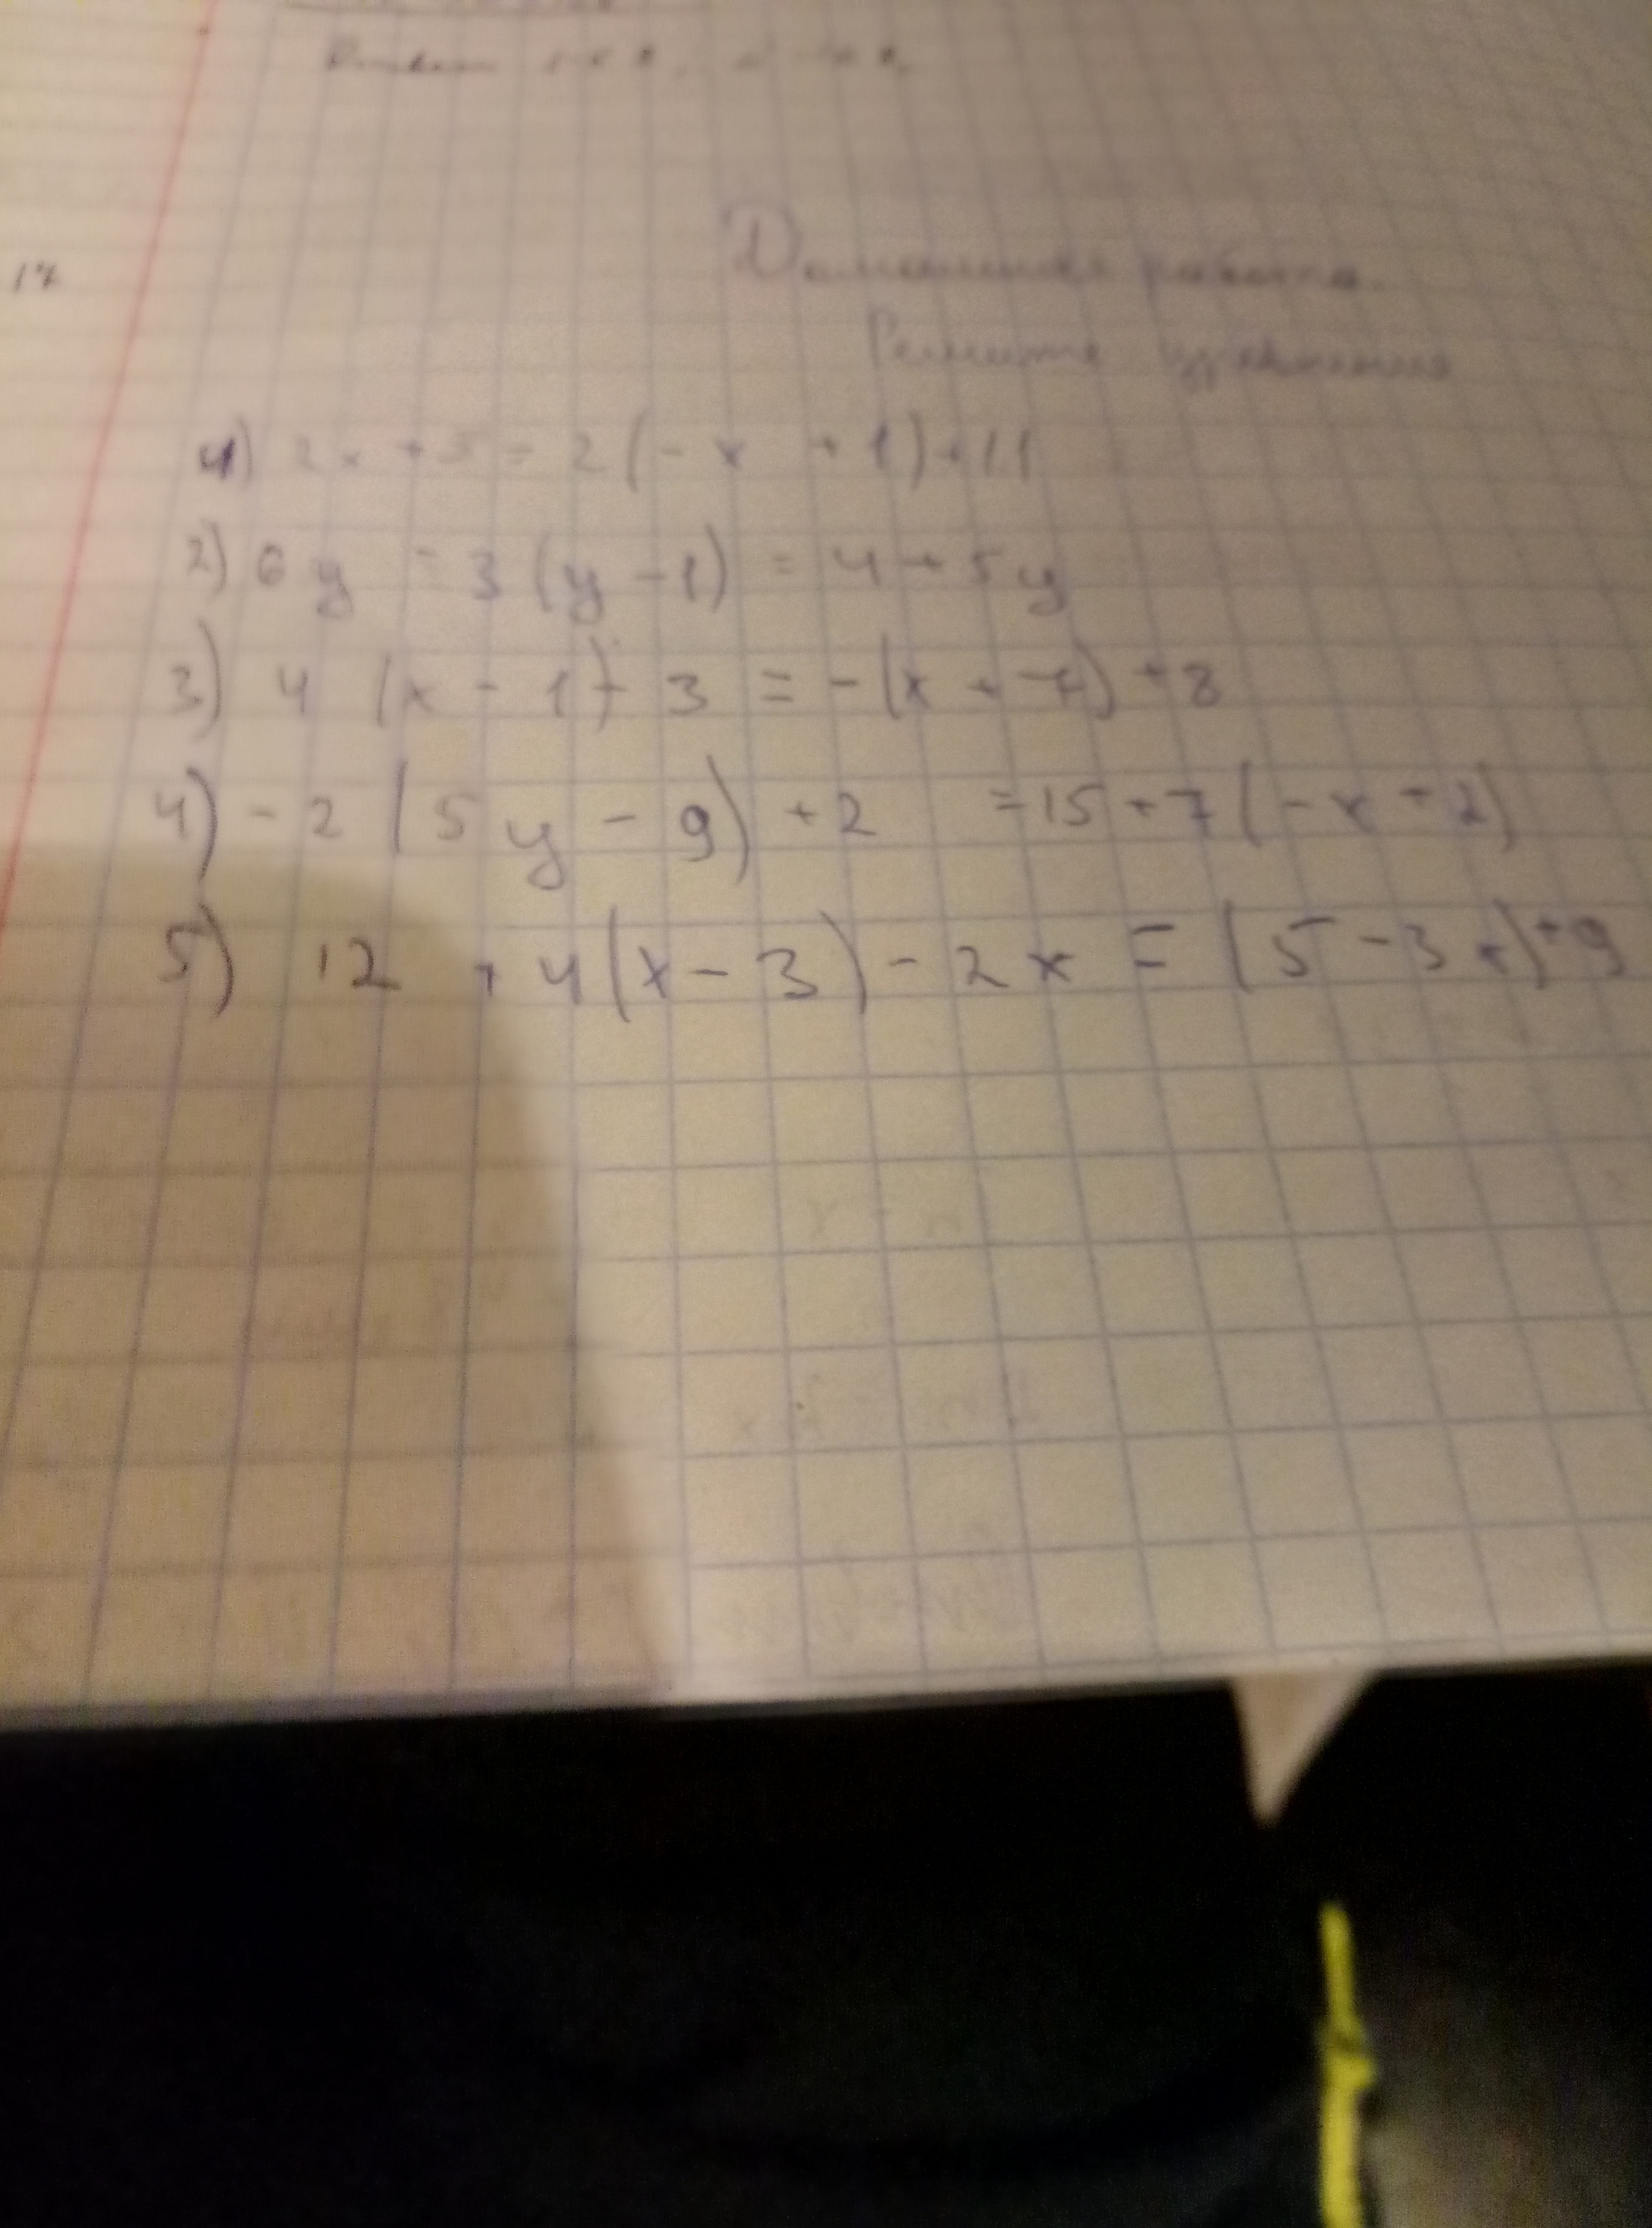 17
Домашняя работа.
Решите уравнения
1) 2x + 5 = 2(-x + 1) + 11
2) 6y - 3(y - 1) = 4 + 5y
3) 4(x - 1) - 3 = -(x + 7) + 8
4) -2(5y - 9) + 2 = 15 + 7(-x + 2)
5) 12 + 4(x - 3) - 2x = (5 - 3x) + 9